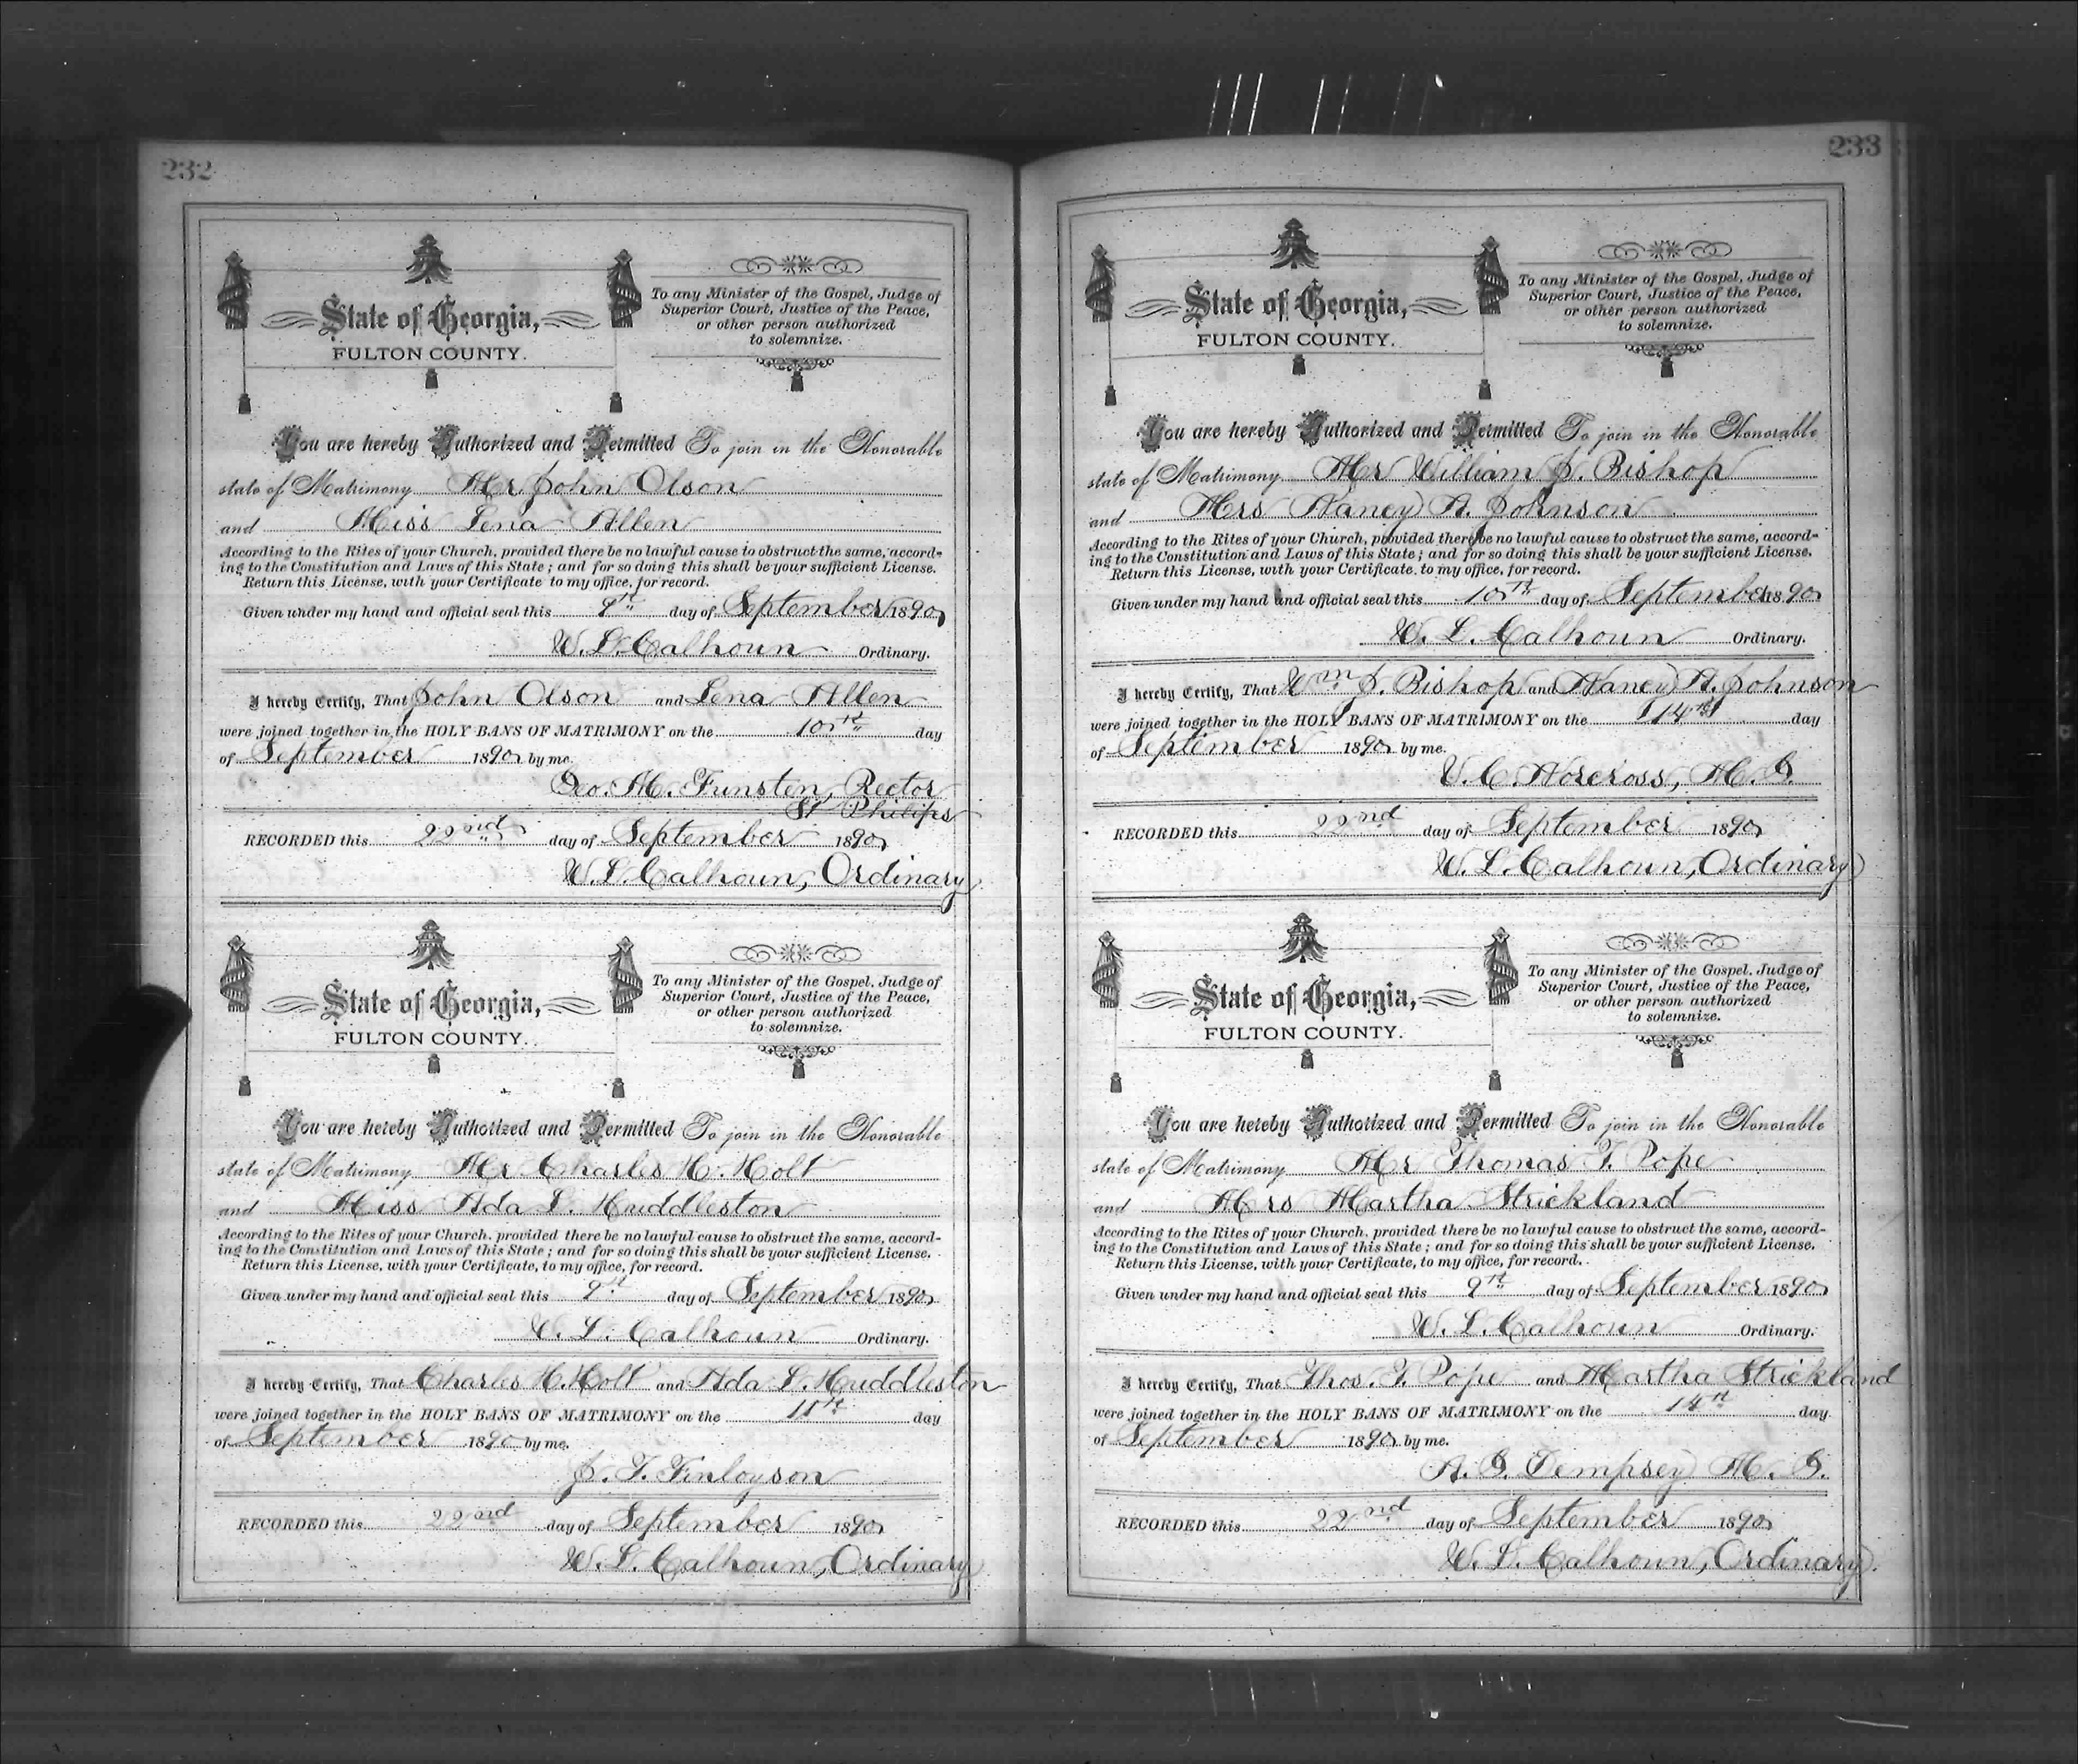 232
State of Georgia,
FULTON COUNTY.
To any Minister of the Gospel, Judge of
Superior Court, Justice of the Peace,
or other person authorized
to solemnize.
You are hereby Authorized and Permitted To join in the Honorable
state of Matrimony Mr John Olson
and Miss Lena Allen
According to the Rites of your Church, provided there be no lawful cause to obstruct the same, accord-
ing to the Constitution and Laws of this State; and for so doing this shall be your sufficient License.
Return this License, with your Certificate to my office, for record.
Given under my hand and official seal this 9th day of September 1890
W. L. Calhoun Ordinary.
I hereby Certify, That John Olson and Lena Allen
were joined together in the HOLY BANS OF MATRIMONY on the 10th day
of September 1890 by me.
Geo. M. Funsten, Rector
St Philips
RECORDED this 22nd day of September 1890
W. L. Calhoun, Ordinary
State of Georgia,
FULTON COUNTY.
To any Minister of the Gospel, Judge of
Superior Court, Justice of the Peace,
or other person authorized
to solemnize.
You are hereby Authorized and Permitted To join in the Honorable
state of Matrimony Mr Charles H. Holt
and Miss Ada L. Huddleston
According to the Rites of your Church, provided there be no lawful cause to obstruct the same, accord-
ing to the Constitution and Laws of this State; and for so doing this shall be your sufficient License.
Return this License, with your Certificate, to my office, for record.
Given under my hand and official seal this 9th day of September 1890
W. L. Calhoun Ordinary.
I hereby Certify, That Charles H. Holt and Ada L. Huddleston
were joined together in the HOLY BANS OF MATRIMONY on the 11th day
of September 1890 by me.
J. T. Finloyson
RECORDED this 22nd day of September 1890
W. L. Calhoun, Ordinary
233
State of Georgia,
FULTON COUNTY.
To any Minister of the Gospel, Judge of
Superior Court, Justice of the Peace,
or other person authorized
to solemnize.
You are hereby Authorized and Permitted To join in the Honorable
state of Matrimony Mr William J. Bishop
and Mrs Nancy A. Johnson
According to the Rites of your Church, provided there be no lawful cause to obstruct the same, accord-
ing to the Constitution and Laws of this State; and for so doing this shall be your sufficient License.
Return this License, with your Certificate, to my office, for record.
Given under my hand and official seal this 10th day of September 1890
W. L. Calhoun Ordinary.
I hereby Certify, That Wm J. Bishop and Nancy A. Johnson
were joined together in the HOLY BANS OF MATRIMONY on the 14th day
of September 1890 by me.
V. C. Norcross, M. G.
RECORDED this 22nd day of September 1890
W. L. Calhoun, Ordinary
State of Georgia,
FULTON COUNTY.
To any Minister of the Gospel, Judge of
Superior Court, Justice of the Peace,
or other person authorized
to solemnize.
You are hereby Authorized and Permitted To join in the Honorable
state of Matrimony Mr Thomas T. Pope
and Mrs Martha Strickland
According to the Rites of your Church, provided there be no lawful cause to obstruct the same, accord-
ing to the Constitution and Laws of this State; and for so doing this shall be your sufficient License.
Return this License, with your Certificate, to my office, for record.
Given under my hand and official seal this 9th day of September 1890
W. L. Calhoun Ordinary.
I hereby Certify, That Thos. T. Pope and Martha Strickland
were joined together in the HOLY BANS OF MATRIMONY on the 14th day
of September 1890 by me.
A. G. Dempsey M. G.
RECORDED this 22nd day of September 1890
W. L. Calhoun, Ordinary.